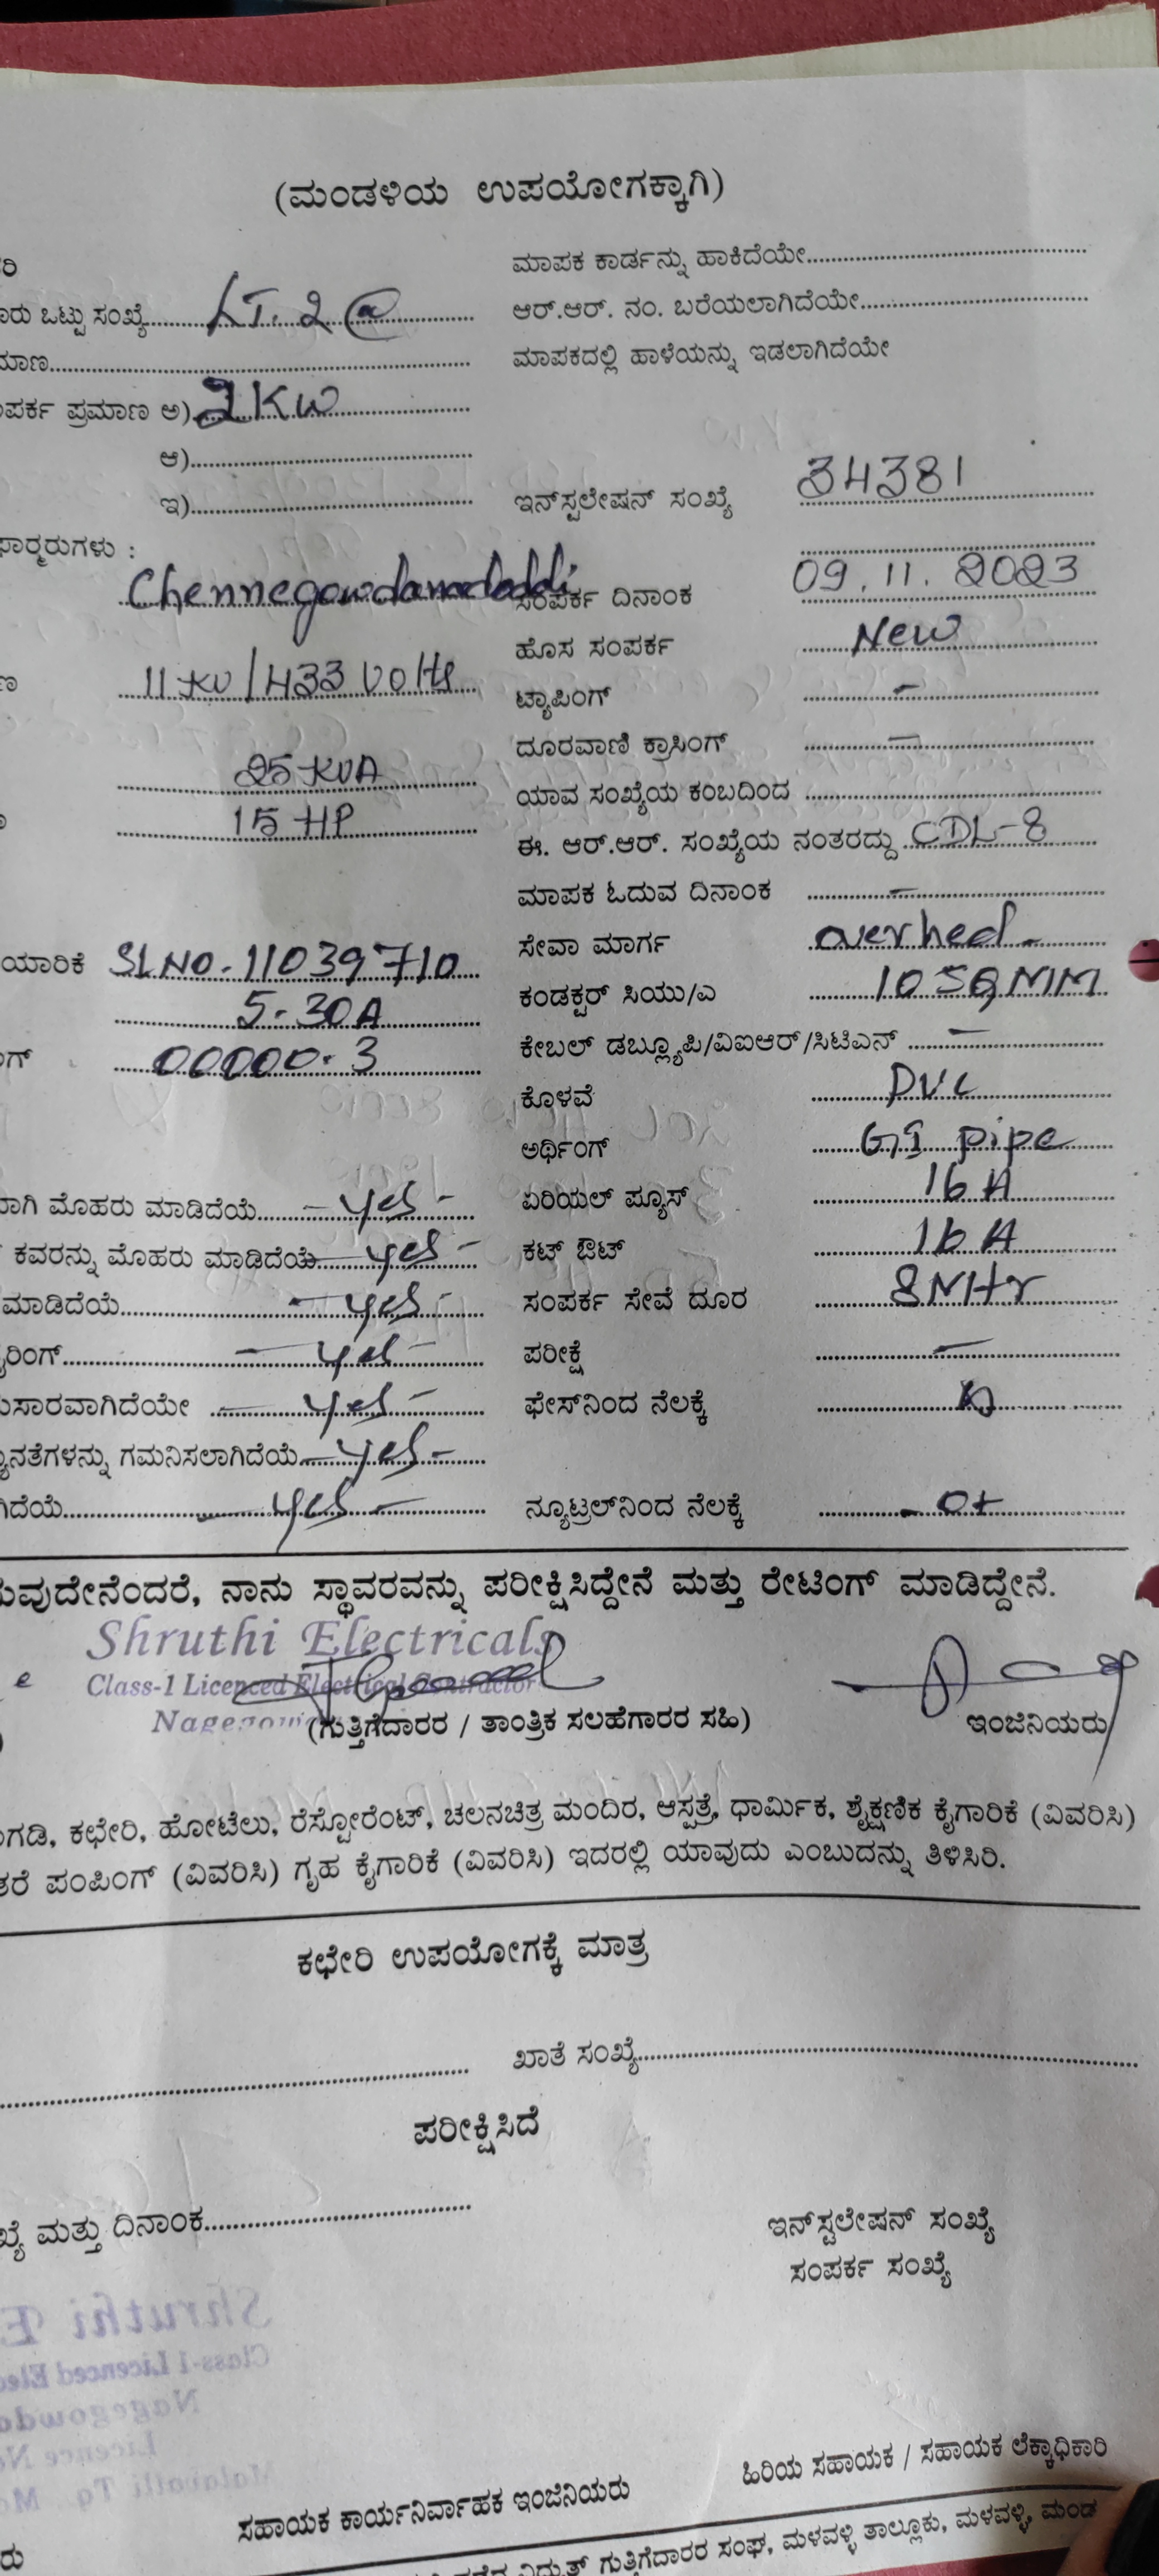 (ಮಂಡಳಿಯ ಉಪಯೋಗಕ್ಕಾಗಿ)
ಮಾಪಕ ಕಾರ್ಡನ್ನು ಹಾಕಿದೆಯೇ
ಒಟ್ಟು ಸಂಖ್ಯೆ LT. 2 @ ಆರ್.ಆರ್. ನಂ. ಬರೆಯಲಾಗಿದೆಯೇ
ಮಾಪಕದಲ್ಲಿ ಹಾಳೆಯನ್ನು ಇಡಲಾಗಿದೆಯೇ
ಪ್ರಮಾಣ ಅ) 2 KW
ಆ)
ಇ) ಇನ್‌ಸ್ಟಲೇಷನ್ ಸಂಖ್ಯೆ 34381
Chennegowdanadoddi ಸಂಪರ್ಕ ದಿನಾಂಕ 09.11.2023
ಹೊಸ ಸಂಪರ್ಕ New
11 KV / 433 Volts ಟ್ಯಾಪಿಂಗ್ -
ದೂರವಾಣಿ ಕ್ರಾಸಿಂಗ್ -
25 KVA ಯಾವ ಸಂಖ್ಯೆಯ ಕಂಬದಿಂದ
15 HP ಈ. ಆರ್.ಆರ್. ಸಂಖ್ಯೆಯ ನಂತರದ್ದು CDL-8
ಮಾಪಕ ಓದುವ ದಿನಾಂಕ -
SL NO - 11039710 ಸೇವಾ ಮಾರ್ಗ overhed
5-30A ಕಂಡಕ್ಟರ್ ಸಿಯು/ಎ 10 SQ MM
00000.3 ಕೇಬಲ್ ಡಬ್ಲ್ಯೂಪಿ/ವಿಐಆರ್/ಸಿಟಿಎನ್ -
ಕೊಳವೆ PVC
ಅರ್ಥಿಂಗ್ GI pipe
ಮೊಹರು ಮಾಡಿದೆಯೆ - yes - ಏರಿಯಲ್ ಪ್ಯೂಸ್ 16 A
ಕವರನ್ನು ಮೊಹರು ಮಾಡಿದೆಯೆ - yes - ಕಟ್ ಔಟ್ 16 A
ಮಾಡಿದೆಯೆ - yes - ಸಂಪರ್ಕ ಸೇವೆ ದೂರ 8 Mtr
- yes - ಪರೀಕ್ಷೆ -
- yes - ಫೇಸ್‌ನಿಂದ ನೆಲಕ್ಕೆ
ಗಮನಿಸಲಾಗಿದೆಯೆ - yes -
- yes - ನ್ಯೂಟ್ರಲ್‌ನಿಂದ ನೆಲಕ್ಕೆ
ನಾನು ಸ್ಥಾವರವನ್ನು ಪರೀಕ್ಷಿಸಿದ್ದೇನೆ ಮತ್ತು ರೇಟಿಂಗ್ ಮಾಡಿದ್ದೇನೆ.
Shruthi Electricals
Class-1 Licenced Electrical Contractor
(ಗುತ್ತಿಗೆದಾರರ / ತಾಂತ್ರಿಕ ಸಲಹೆಗಾರರ ಸಹಿ) ಇಂಜಿನಿಯರು
ಕಛೇರಿ, ಹೋಟೆಲು, ರೆಸ್ಟೋರೆಂಟ್, ಚಲನಚಿತ್ರ ಮಂದಿರ, ಆಸ್ಪತ್ರೆ, ಧಾರ್ಮಿಕ, ಶೈಕ್ಷಣಿಕ ಕೈಗಾರಿಕೆ (ವಿವರಿಸಿ)
ಪಂಪಿಂಗ್ (ವಿವರಿಸಿ) ಗೃಹ ಕೈಗಾರಿಕೆ (ವಿವರಿಸಿ) ಇದರಲ್ಲಿ ಯಾವುದು ಎಂಬುದನ್ನು ತಿಳಿಸಿರಿ.
ಕಛೇರಿ ಉಪಯೋಗಕ್ಕೆ ಮಾತ್ರ
ಖಾತೆ ಸಂಖ್ಯೆ
ಪರೀಕ್ಷಿಸಿದೆ
ಮತ್ತು ದಿನಾಂಕ
ಇನ್‌ಸ್ಟಲೇಷನ್ ಸಂಖ್ಯೆ
ಸಂಪರ್ಕ ಸಂಖ್ಯೆ
ಹಿರಿಯ ಸಹಾಯಕ / ಸಹಾಯಕ ಲೆಕ್ಕಾಧಿಕಾರಿ
ಸಹಾಯಕ ಕಾರ್ಯನಿರ್ವಾಹಕ ಇಂಜಿನಿಯರು
ವಿದ್ಯುತ್ ಗುತ್ತಿಗೆದಾರರ ಸಂಘ, ಮಳವಳ್ಳಿ ತಾಲ್ಲೂಕು, ಮಳವಳ್ಳಿ,